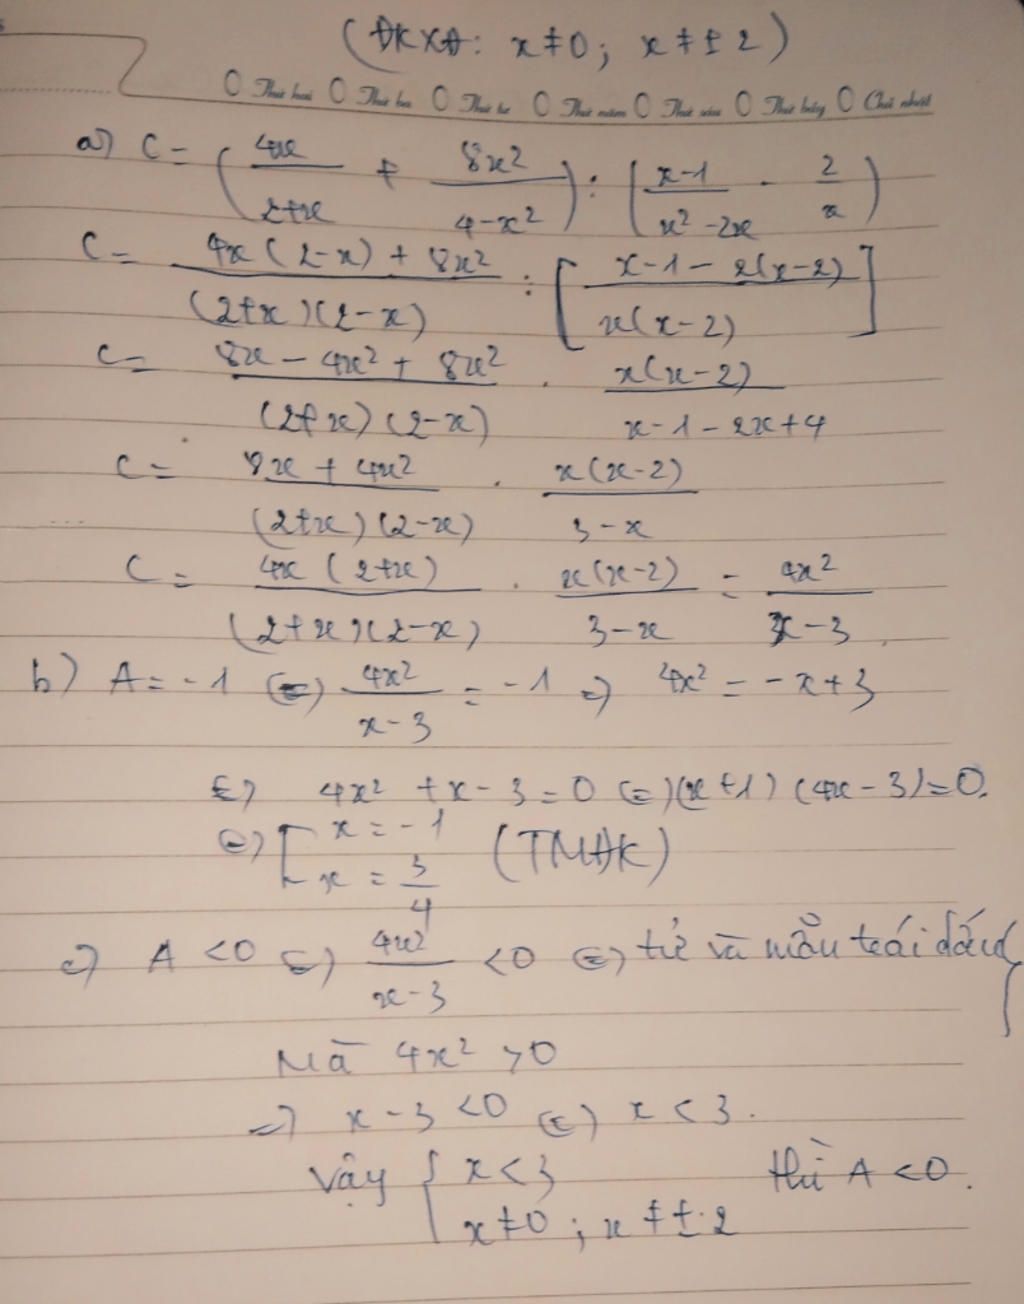 (ĐKXĐ: x ≠ 0; x ≠ ± 2)
Thứ hai Thứ ba Thứ tư Thứ năm Thứ sáu Thứ bảy Chủ nhật
a) C = (4x/(2+x) + 8x²/(4-x²)) : ((x-1)/(x²-2x) - 2/x)
C = (4x(2-x) + 8x²)/((2+x)(2-x)) : [(x-1-2(x-2))/(x(x-2))]
C = (8x - 4x² + 8x²)/((2+x)(2-x)) . x(x-2)/(x-1-2x+4)
C = (8x + 4x²)/((2+x)(2-x)) . x(x-2)/(3-x)
C = 4x(2+x)/((2+x)(2-x)) . x(x-2)/(3-x) = 4x²/(x-3)
b) A = -1 (=) 4x²/(x-3) = -1 =) 4x² = -x+3
(=) 4x² + x - 3 = 0 (=) (x+1)(4x-3) = 0.
(=) [ x = -1
x = 3/4 (TMĐK)
c) A < 0 (=) 4x²/(x-3) < 0 (=) tử và mẫu trái dấu
Mà 4x² > 0
=) x - 3 < 0 (=) x < 3.
Vậy { x < 3 thì A < 0.
x ≠ 0; x ≠ ± 2